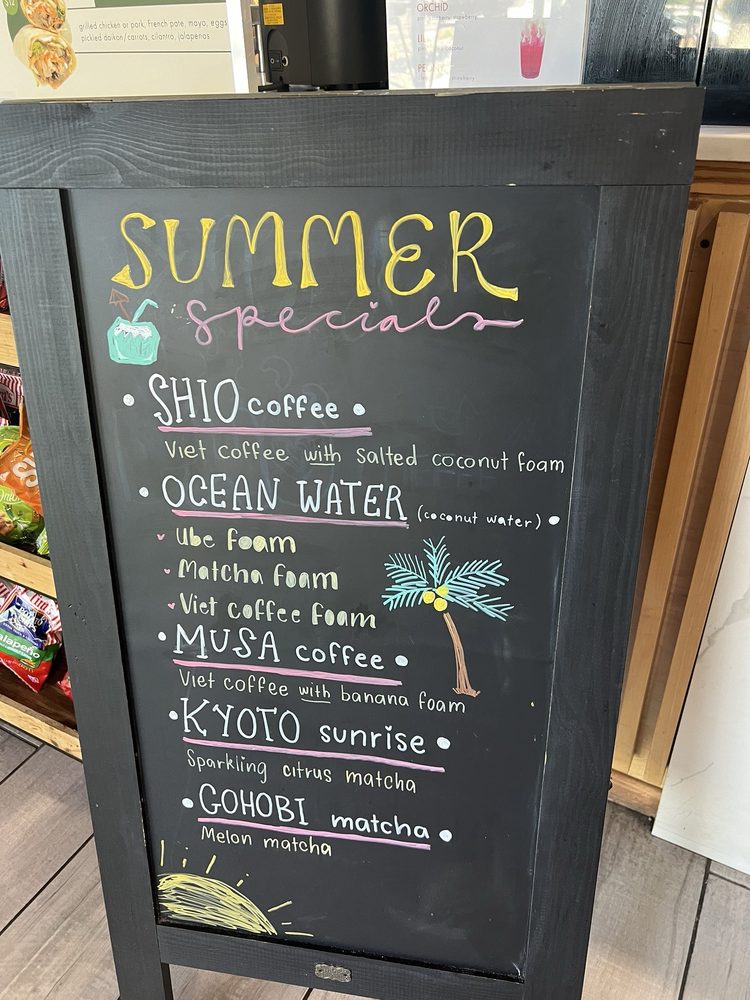 grilled chicken or pork, French pate, mayo, eggs
pickled daikon/carrots, cilantro, jalapenos
ORCHID
SUMMER
specials
SHIO coffee
Viet coffee with salted coconut foam
OCEAN WATER (coconut water)
Ube foam
Matcha foam
Viet coffee foam
MUSA coffee
Viet coffee with banana foam
KYOTO sunrise
Sparkling citrus matcha
GOHOBI matcha
Melon matcha